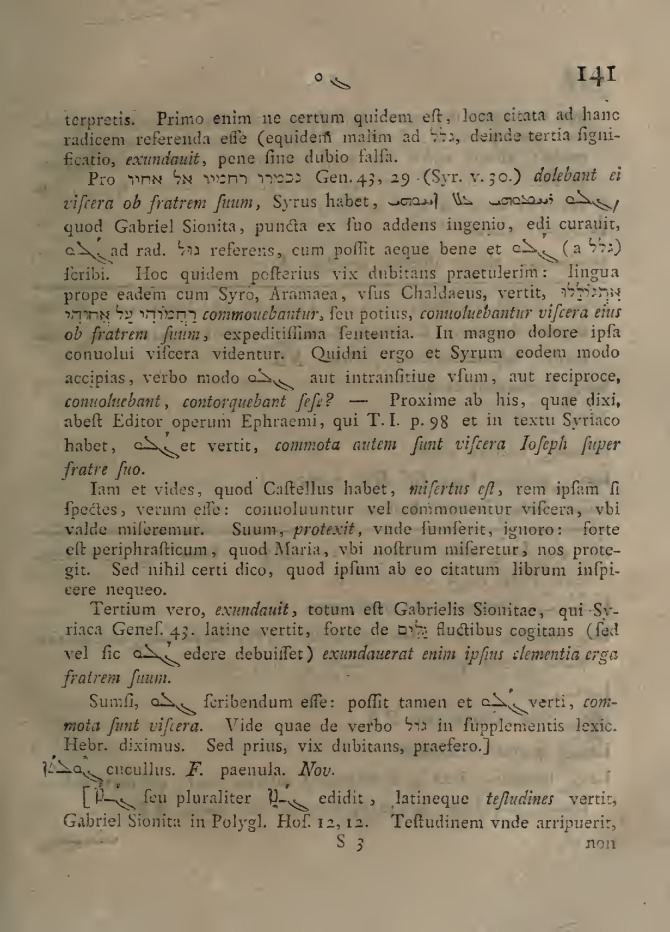 141
terpretis. Primo enim ne certum quidem eſt, loca citata ad hanc
radicem referenda eſſe (equidem malim ad גלל, deinde tertia ſigni-
ficatio, exundauit, pene ſine dubio falſa.
Pro נכמרו רחמיו אל אחיו Gen. 43, 29 (Syr. v. 30.) dolebant ei
viſcera ob fratrem ſuum, Syrus habet,
quod Gabriel Sionita, puncta ex ſuo addens ingenio, edi curauit,
ad rad. גול referens, cum poſſit aeque bene et (a גלל)
ſcribi. Hoc quidem poſterius vix dubitans praetulerim: lingua
prope eadem cum Syro, Aramaea, vſus Chaldaeus, vertit, אתגוללו
רחמוהי על אחוהי commouebantur, ſeu potius, conuoluebantur viſcera eius
ob fratrem ſuum, expeditiſſima ſententia. In magno dolore ipſa
conuolui viſcera videntur. Quidni ergo et Syrum eodem modo
accipias, verbo modo aut intranſitiue vſum, aut reciproce,
conuoluebant, contorquebant ſeſe? — Proxime ab his, quae dixi,
abeſt Editor operum Ephraemi, qui T. I. p. 98 et in textu Syriaco
habet, et vertit, commota autem ſunt viſcera Ioſeph ſuper
fratre ſuo.
Iam et vides, quod Caſtellus habet, miſertus eſt, rem ipſam ſi
ſpectes, verum eſſe: conuoluuntur vel commouentur viſcera, vbi
valde miſeremur. Suum, protexit, vnde ſumſerit, ignoro: forte
eſt periphraſticum, quod Maria, vbi noſtrum miſeretur, nos prote-
git. Sed nihil certi dico, quod ipſum ab eo citatum librum inſpi-
cere nequeo.
Tertium vero, exundauit, totum eſt Gabrielis Sionitae, qui Sy-
riaca Geneſ. 43. latine vertit, forte de גלים fluctibus cogitans (ſed
vel ſic edere debuiſſet) exundauerat enim ipſius clementia erga
fratrem ſuum.
Sumſi, ſcribendum eſſe: poſſit tamen et verti, com-
mota ſunt viſcera. Vide quae de verbo גול in ſupplementis lexic.
Hebr. diximus. Sed prius, vix dubitans, praefero.]
cucullus. F. paenula. Nov.
[ ſeu pluraliter edidit, latineque teſtudines vertit,
Gabriel Sionita in Polygl. Hoſ. 12, 12. Teſtudinem vnde arripuerit,
S 3 non